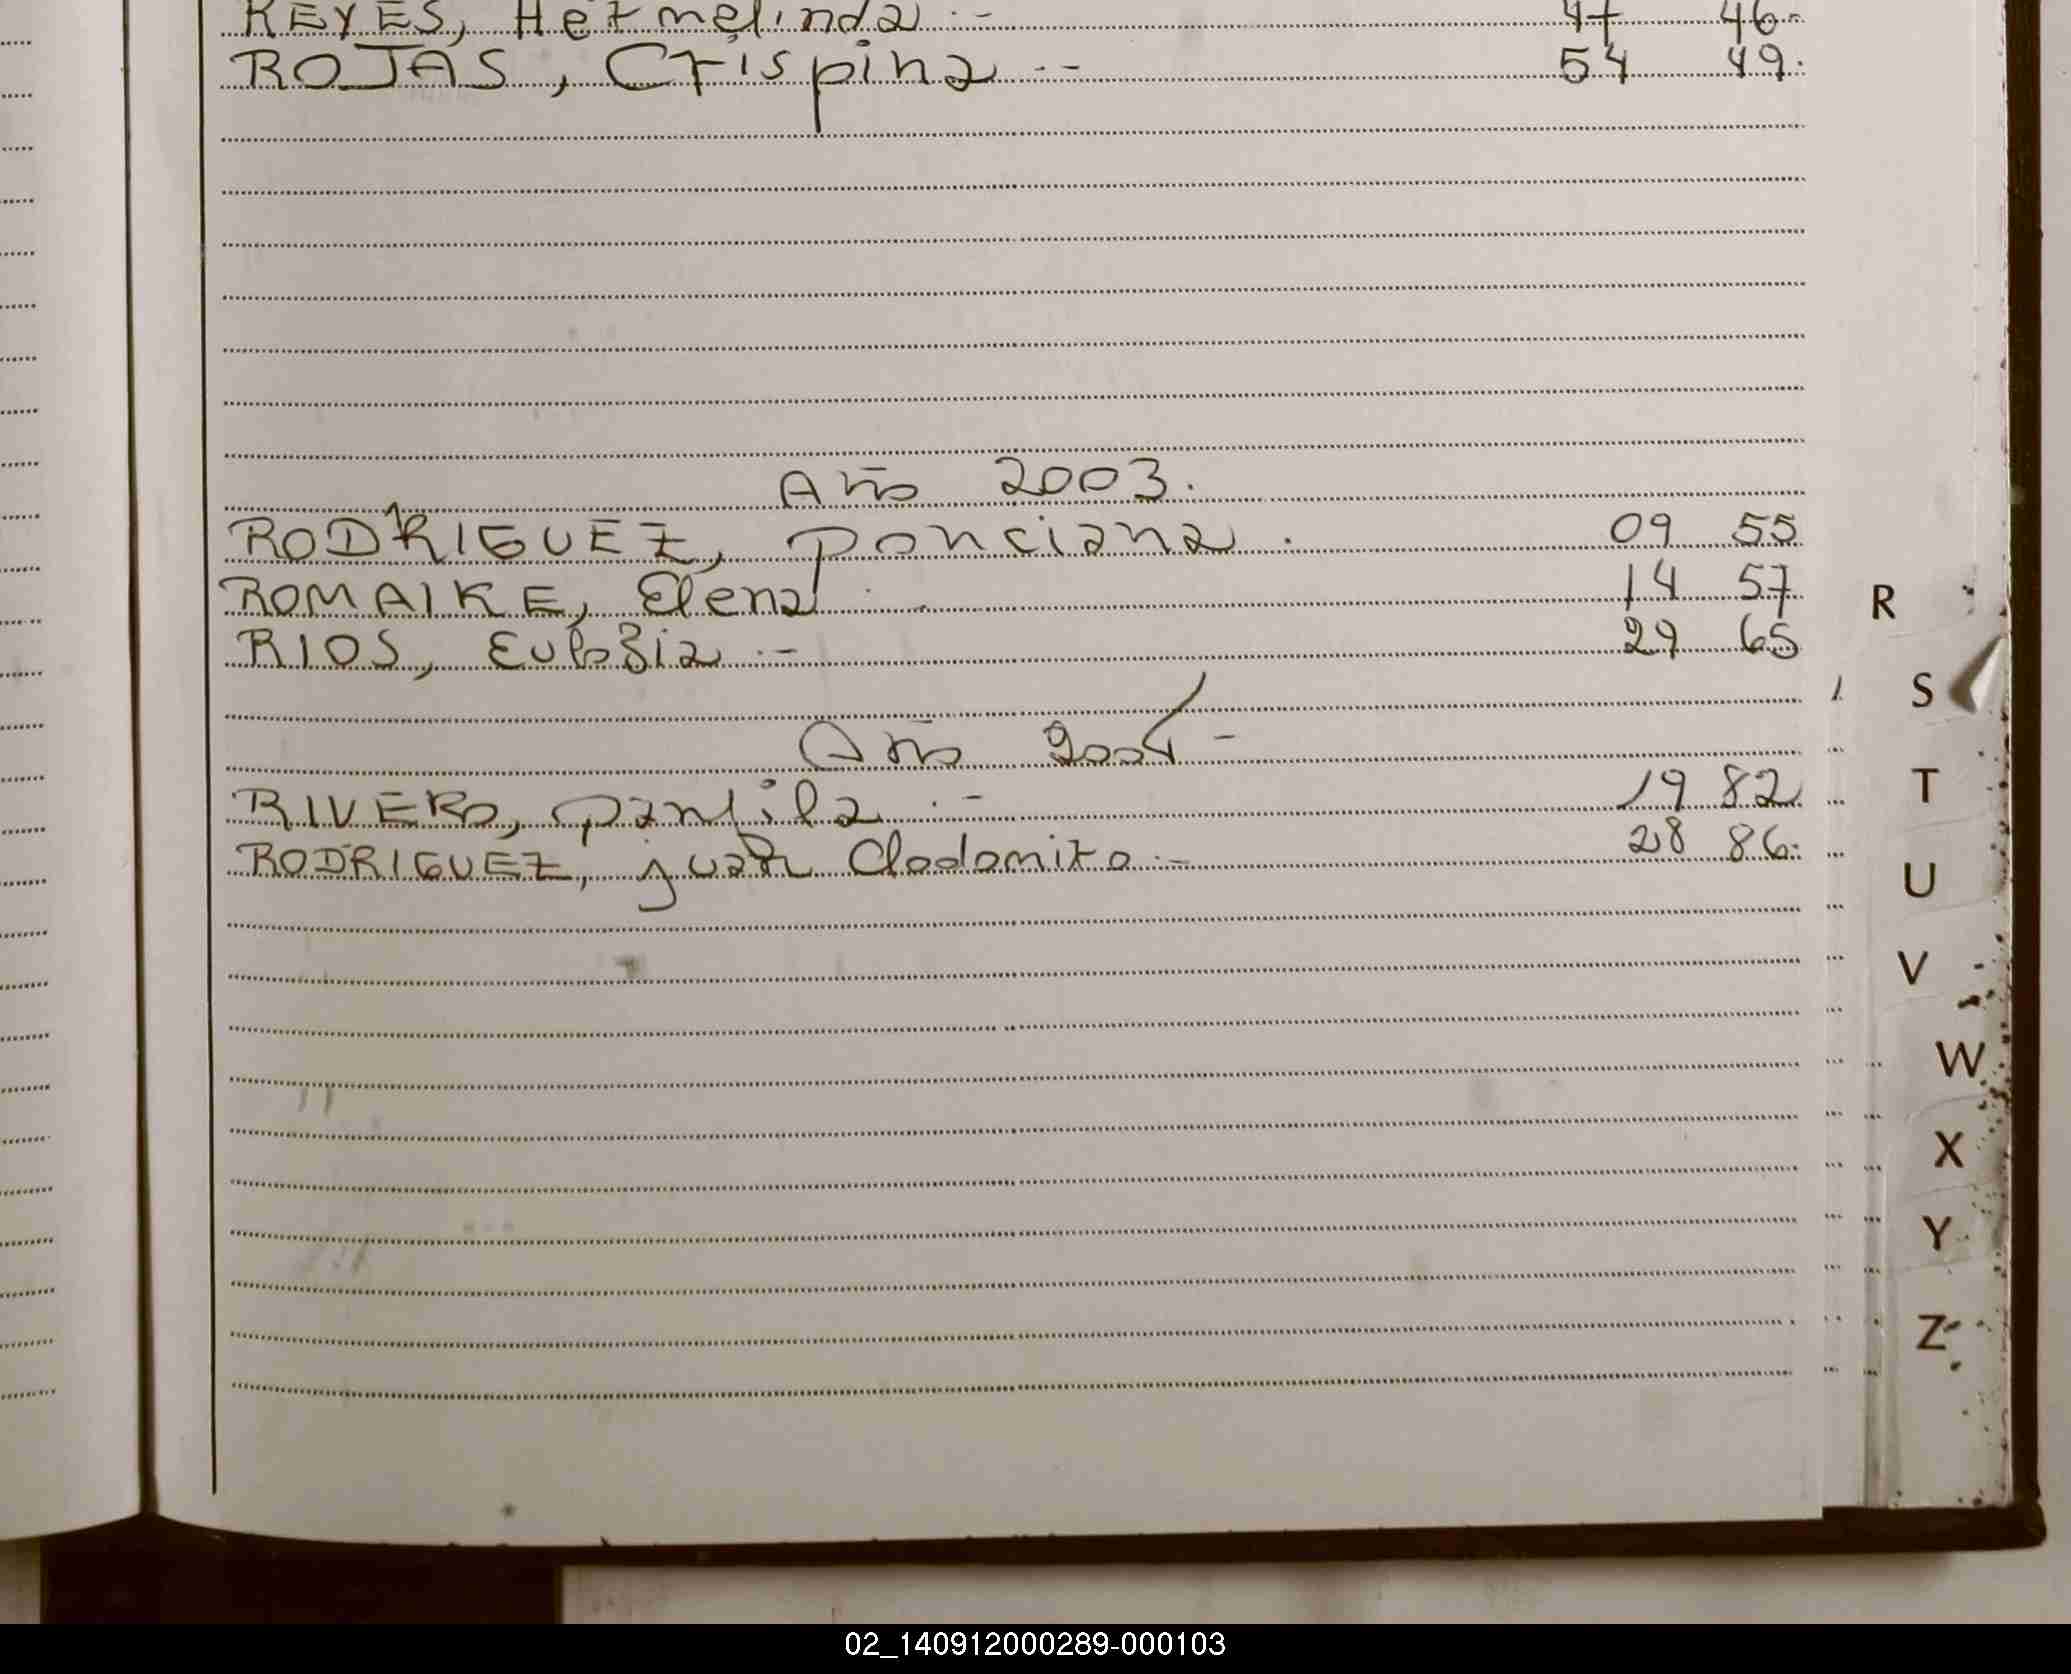 REYES, Hermelinda .- 47 46-
ROJAS, Crispina -- 54 49.
Año 2003.
RODRIGUEZ, Ponciana . 09 55
ROMAIKE, Elena . 14 57
RIOS, Eulogia .- 29 65
Año 2004 -
RIVERO, Panfila .- 19 82
RODRIGUEZ, juan Clodomiro .- 28 86.
R
S
T
U
V
W
X
Y
Z
02_140912000289-000103